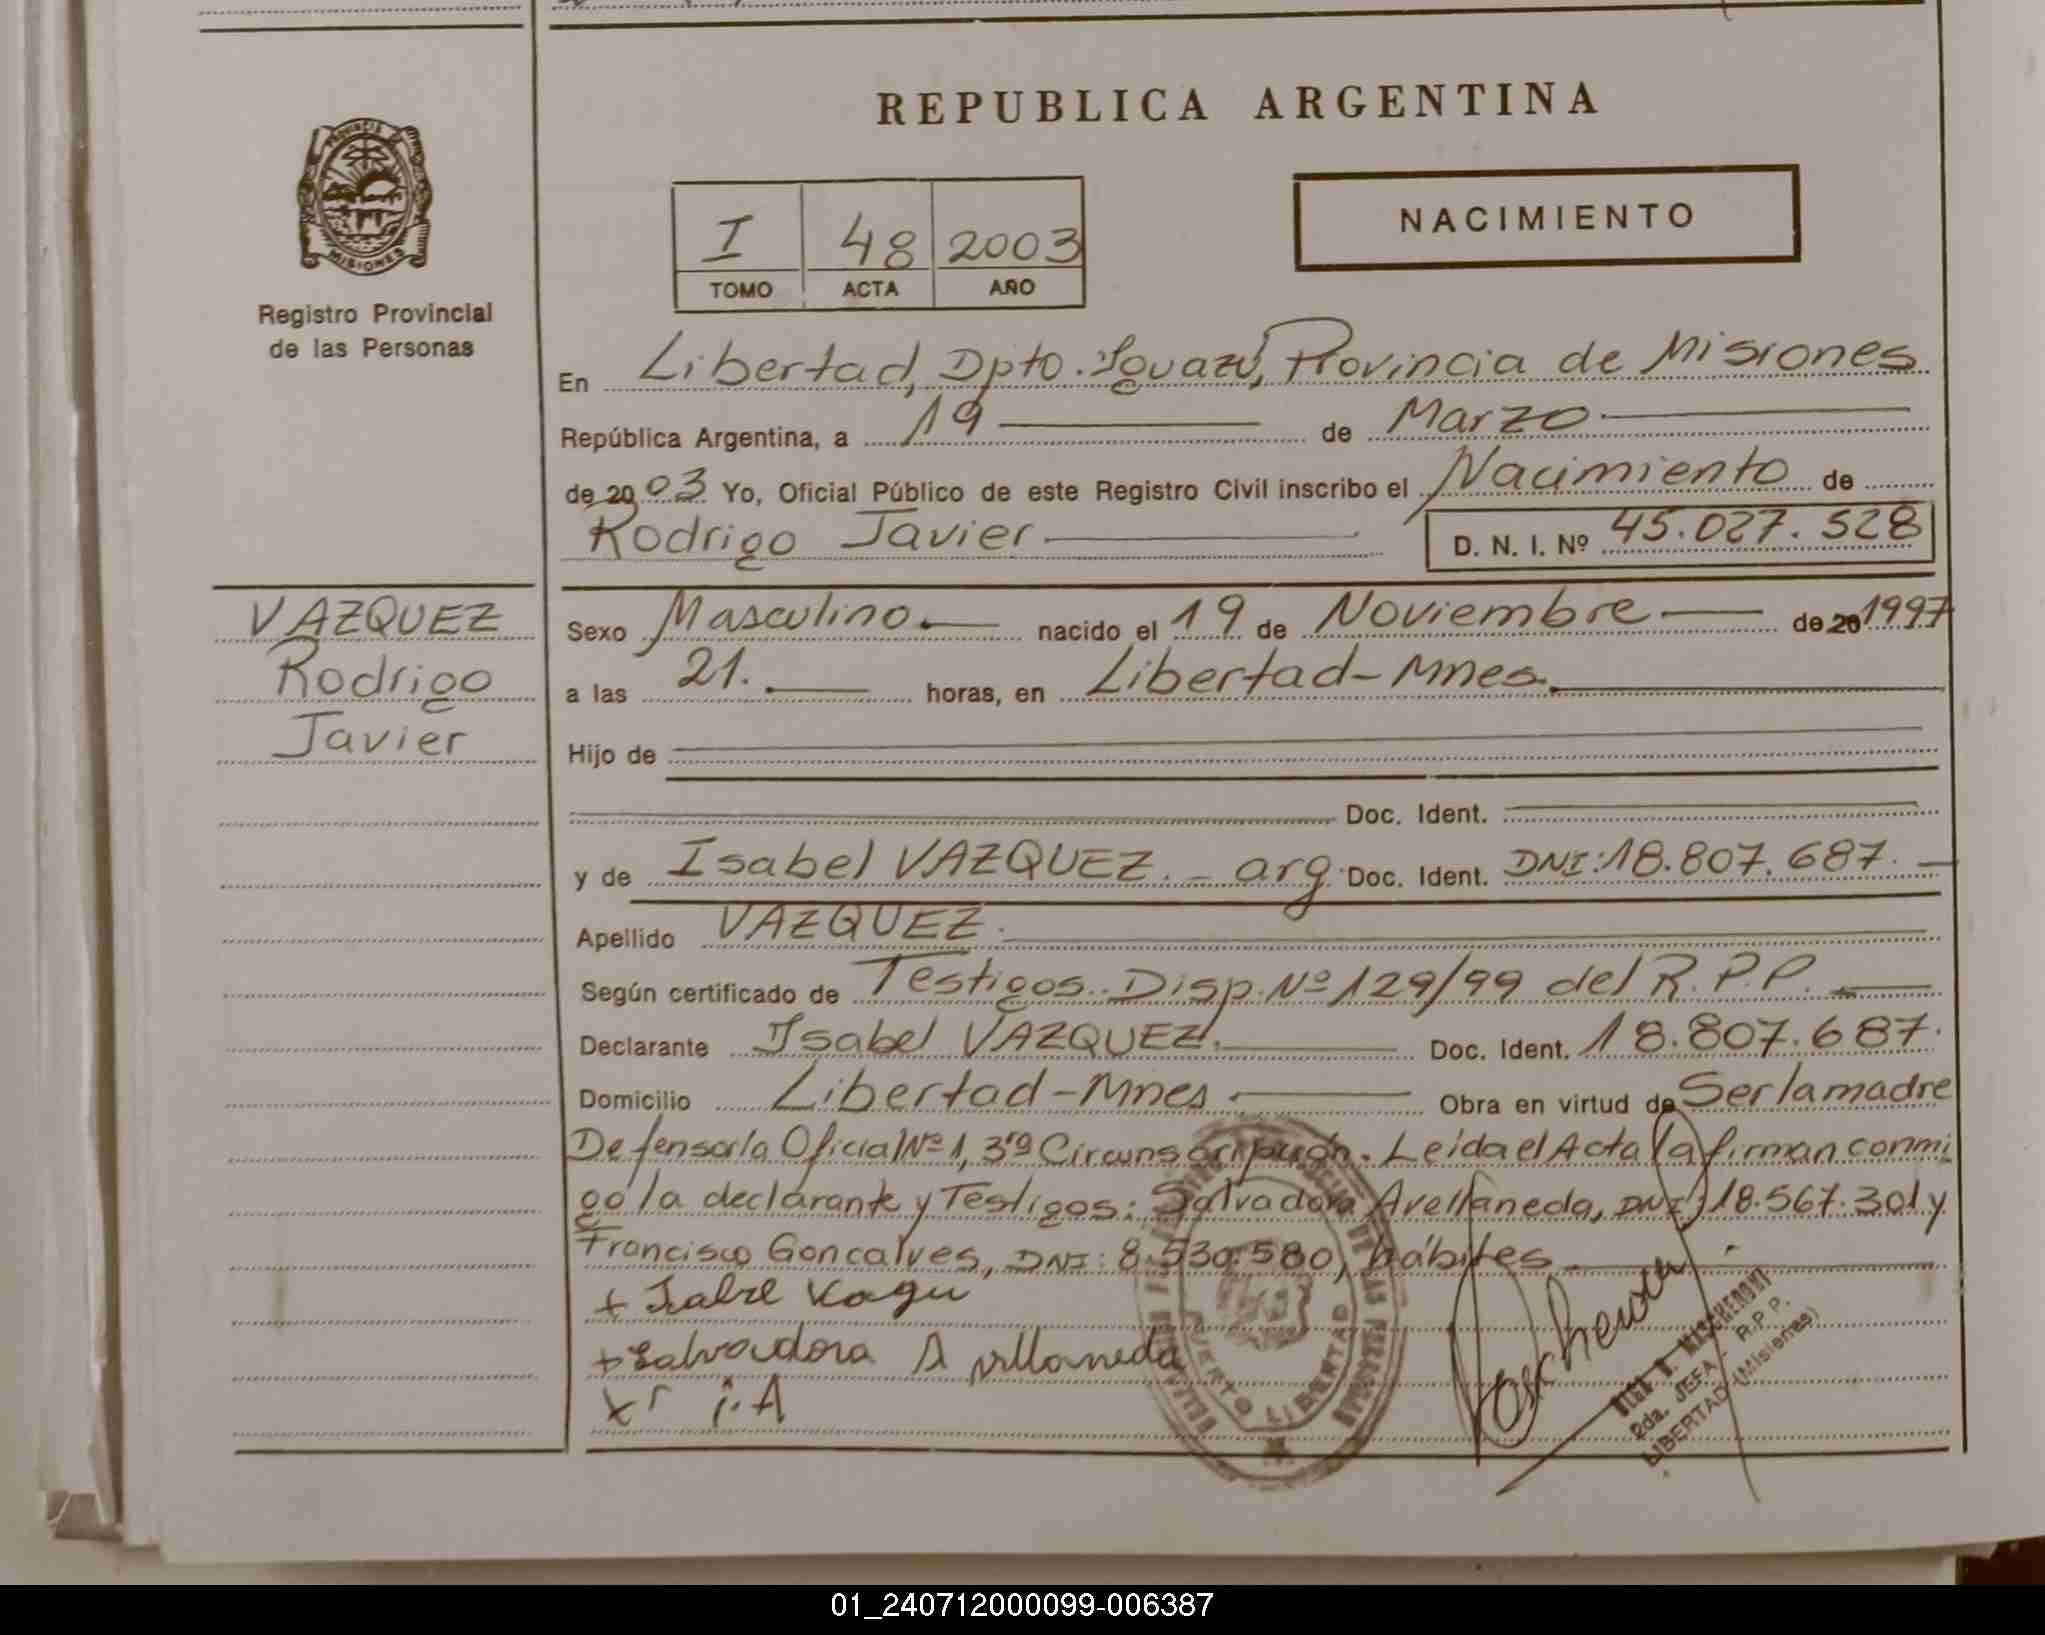 REPUBLICA ARGENTINA
PROVINCIA DE
MISIONES
Registro Provincial
de las Personas
I 48 2003
TOMO ACTA AÑO
NACIMIENTO
En Libertad, Dpto. Iguazú, Provincia de Misiones
República Argentina, a 19 de Marzo
de 2003 Yo, Oficial Público de este Registro Civil inscribo el Nacimiento de
Rodrigo Javier D. N. I. Nº 45.027.528
VAZQUEZ
Rodrigo
Javier
Sexo Masculino nacido el 19 de Noviembre de 20 1997
a las 21. horas, en Libertad-Mnes.
Hijo de
Doc. Ident.
y de Isabel VAZQUEZ. - arg. Doc. Ident. DNI: 18.807.687.
Apellido VAZQUEZ.
Según certificado de Testigos. Disp. Nº 129/99 del R.P.P.
Declarante Isabel VAZQUEZ. Doc. Ident. 18.807.687.
Domicilio Libertad-Mnes Obra en virtud de Ser la madre
Defensoría Oficial Nº 1, 3ra Circunscripción. Leída el Acta la firman conmi
go la declarante y Testigos: Salvadora Avellaneda, DNI: 18.567.301 y
Francisco Goncalves, DNI: 8.530.580, hábiles
+ Isabel
+ Salvadora A
PUERTO LIBERTAD
2da. JEFA - R.P.P.
LIBERTAD (Misiones)
01_240712000099-006387